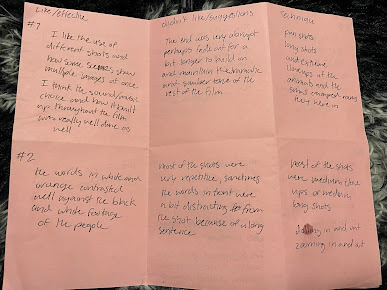 Like/Effective
#1
I like the use of
different shots and
how some scenes show
multiple images at once
I think the sound/music
choice and how it built
up throughout the film
was really well done as
well
didn't like/suggestions
The end was very abrupt
perhaps fade out for a
bit longer to build on
and maintain the dramatic
and somber tone of the
rest of the film
Technique
pan shots
long shots
and extreme
close ups of the
animals and the
small cramped
they were in
#2
the words in white and
orange contrasted
well against the black
and white footage
of the people
Most of the shots were
very repetitive, sometimes
the words in front were
a bit distracting from
the shot because of a long
sentence
Most of the shots
were medium close
ups or medium
long shots
in and out
zooming in and out